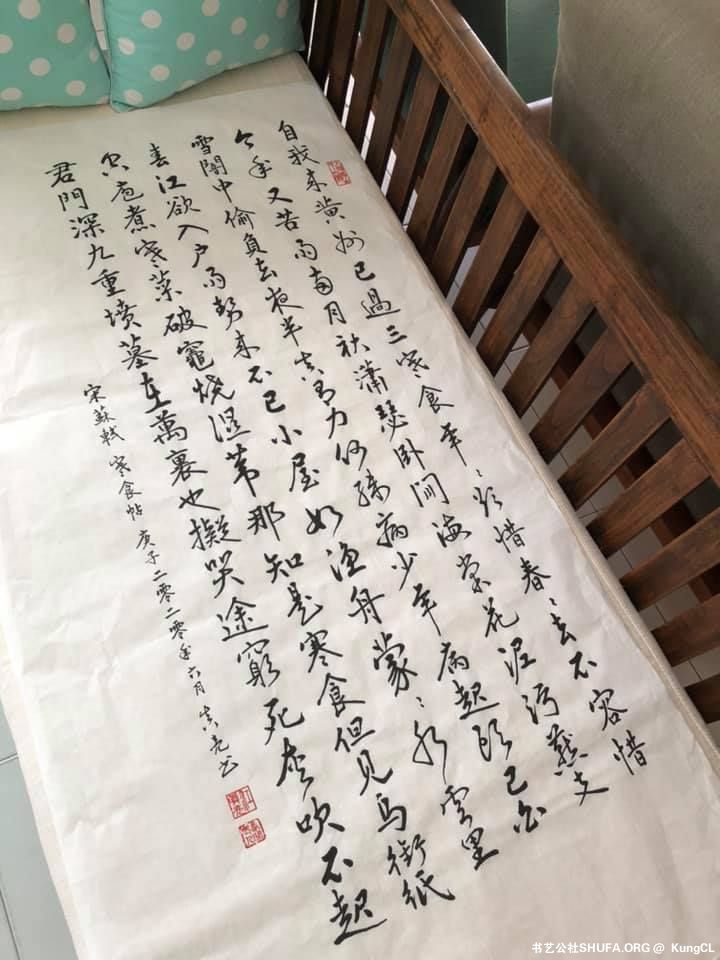 自我来黄州已過三寒食年〻欲惜春〻去不容惜
今年又苦雨两月秋瀟瑟卧闻海棠花泥污燕支
雪闇中偷負去夜半真有力何殊病少年病起頭已白
春江欲入户雨勢来不已小屋如渔舟蒙〻水雲里
空庖煮寒菜破竈烧湿苇那知是寒食但见烏銜纸
君門深九重墳墓在萬裏也擬哭途窮死灰吹不起
宋蘇軾寒食帖 庚子二零二零年六月 书
书艺公社SHUFA.ORG @ KungCL